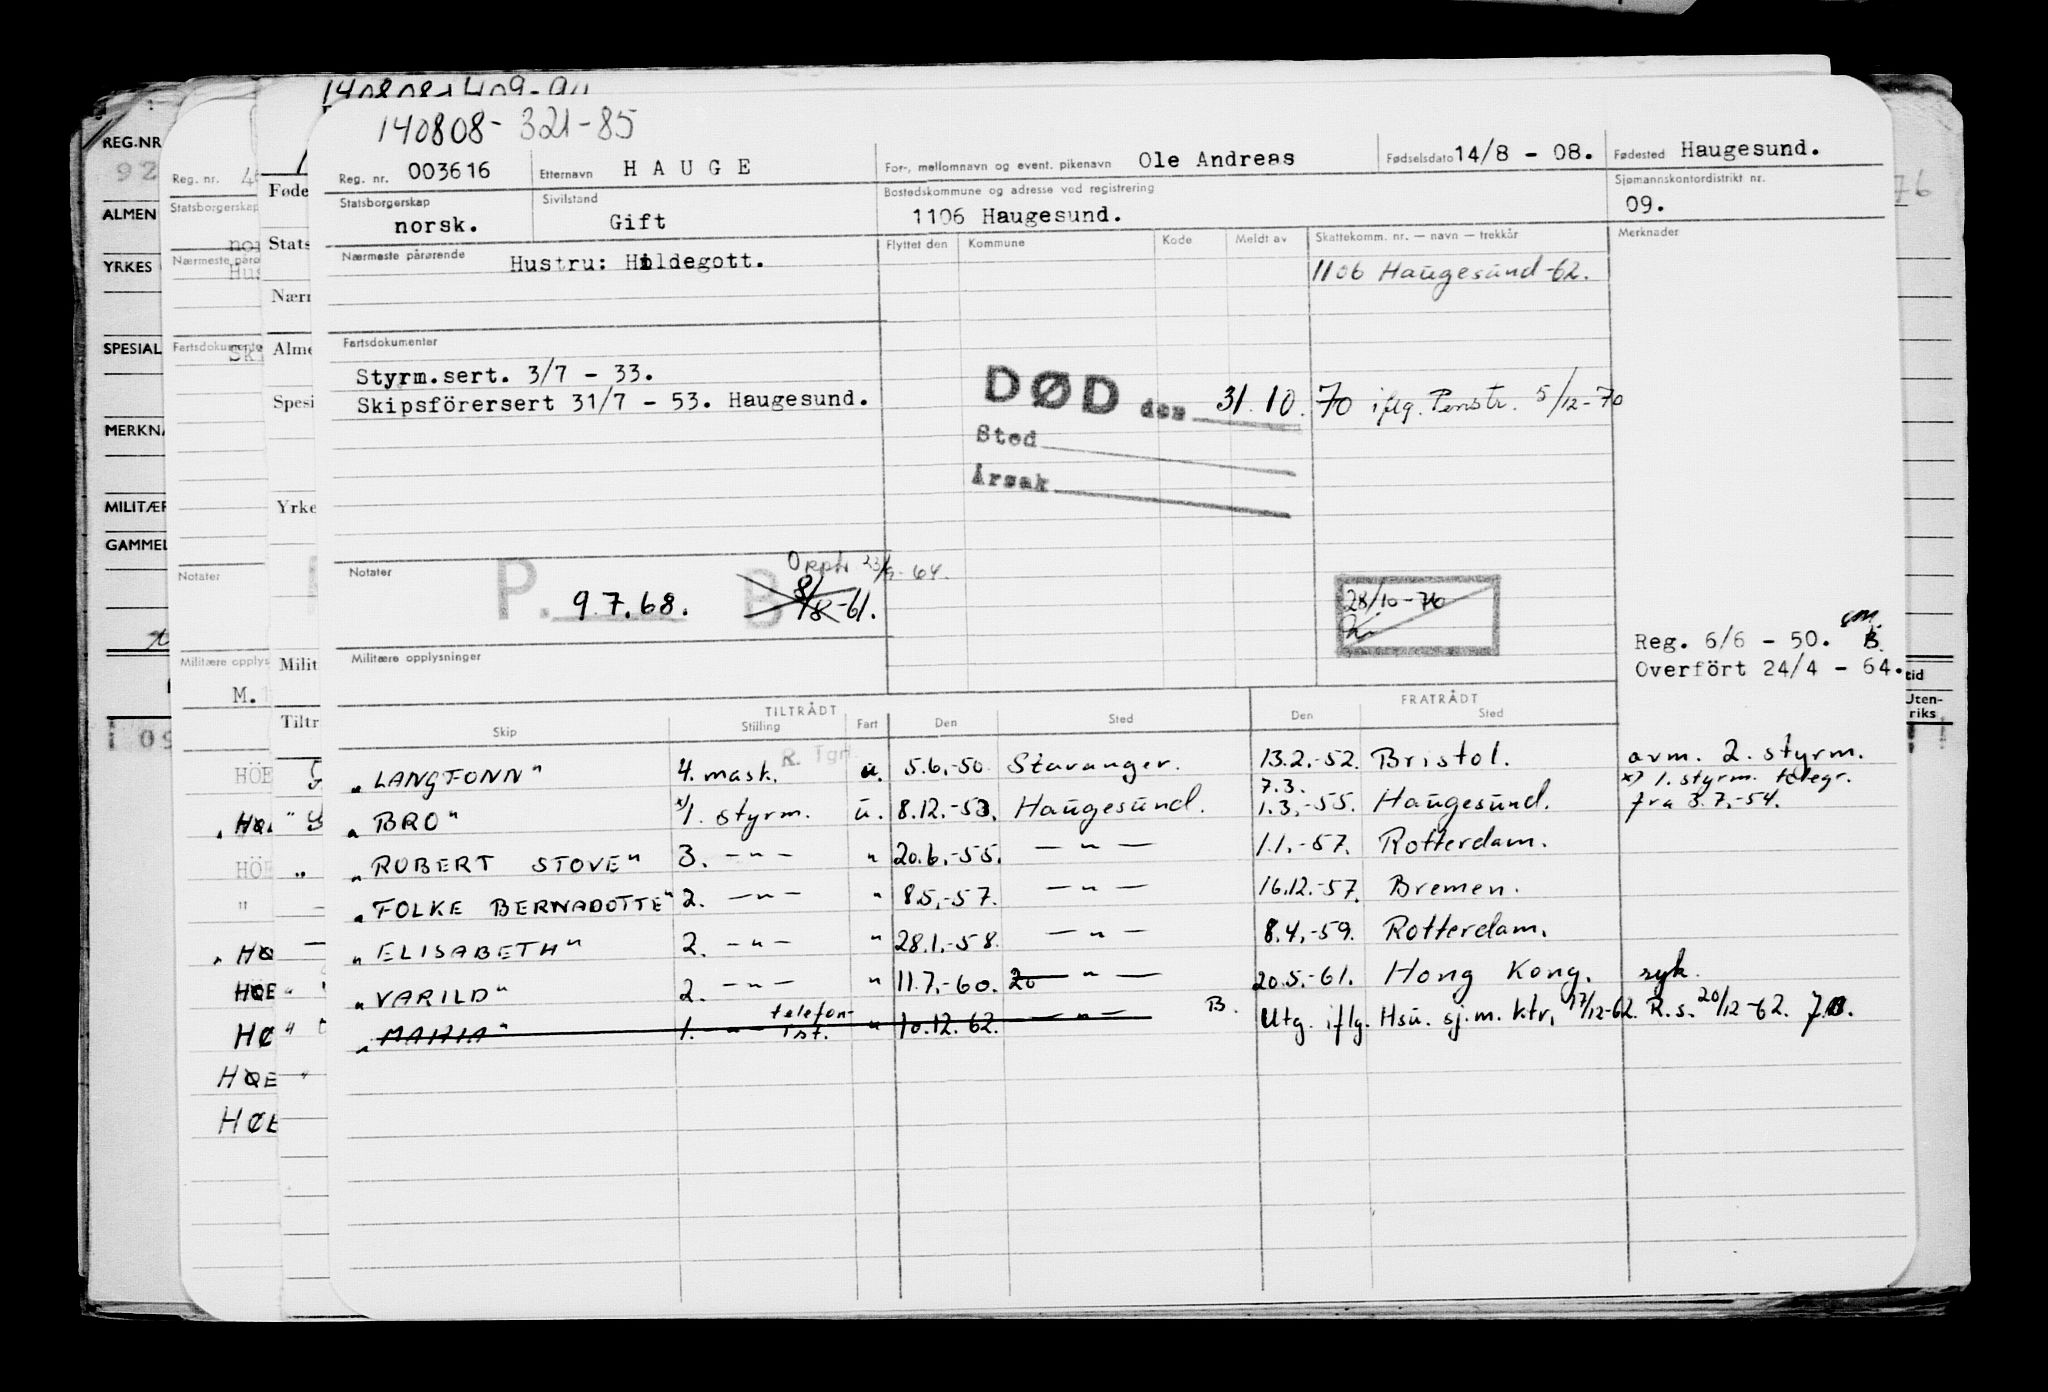 140808-321-85
Reg. nr. 003616 Etternavn HAUGE For-, mellomnavn og event. pikenavn Ole Andreas Fødselsdato 14/8 - 08. Fødested Haugesund.
Statsborgerskap norsk. Sivilstand Gift Bostedskommune og adresse ved registrering 1106 Haugesund. Sjømannskontordistrikt nr. 09.
Nærmeste pårørende Hustru: Hildegott. Flyttet den Kommune Kode Meldt av Skattekomm. nr. — navn — trekkår Merknader
1106 Haugesund -62.
Fartsdokumenter
Styrm.sert. 3/7 - 33.
Skipsförersert 31/7 - 53. Haugesund.
DØD den 31.10.70 iflg. Penstr. 5/12-70
Sted
Årsak
Notater P. 9.7.68. B 8/8-61.
28/10-70
Reg. 6/6 - 50.
Overført 24/4 - 64.
Militære opplysninger
TILTRÅDT FRATRÅDT
Skip Stilling Fart Den Sted Den Sted
R. Tgr.
"LANGFONN" 4. mask. u. 5.6.-50. Stavanger. 13.2.-52. Bristol. avm. 2. styrm.
"BRO" x) 1. styrm. u. 8.12.-53. Haugesund. 7.3. 1.3.-55. Haugesund. x) 1. styrm. telegr. fra 3.7.-54.
"ROBERT STOVE" 3. —"— " 20.6.-55. —"— 1.1.-57. Rotterdam.
"FOLKE BERNADOTTE" 2. —"— " 8.5.-57. —"— 16.12.-57. Bremen.
"ELISABETH" 2. —"— " 28.1.-58. —"— 8.4.-59. Rotterdam.
"VARILD" 2. —"— " 11.7.-60. 20 —"— 20.5.-61. Hong Kong. syk.
1. —"— telefonist. " 10.12.62. —"— B. Utg. iflg. Hsu. sj.m. ktr. 17/12-62. R.s. 20/12-62.